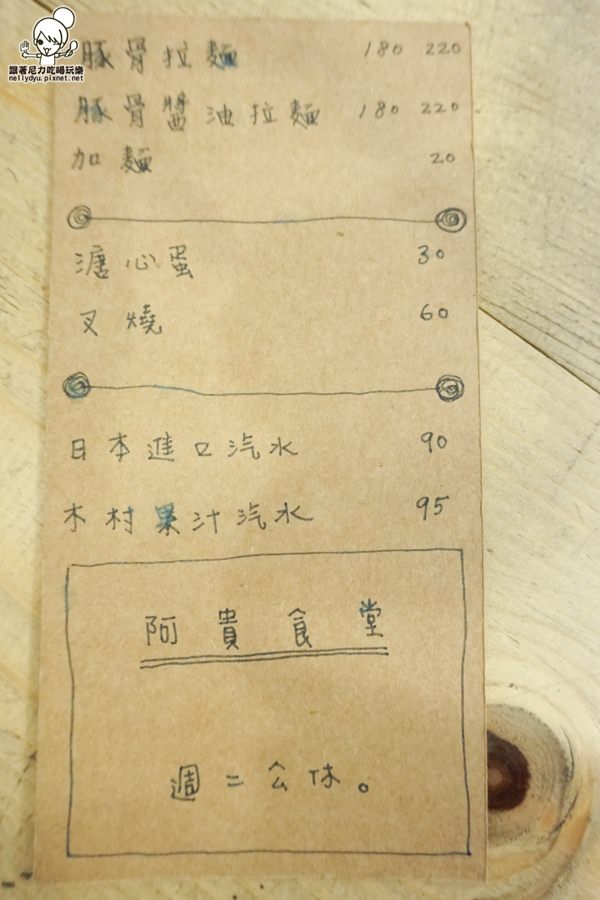 跟著尼力吃喝玩樂
nellydyu.pixnet.net
豚骨拉麵 180 220
豚骨醬油拉麵 180 220
加麵 20
溏心蛋 30
叉燒 60
日本進口汽水 90
木村果汁汽水 95
阿貴食堂
週二公休。